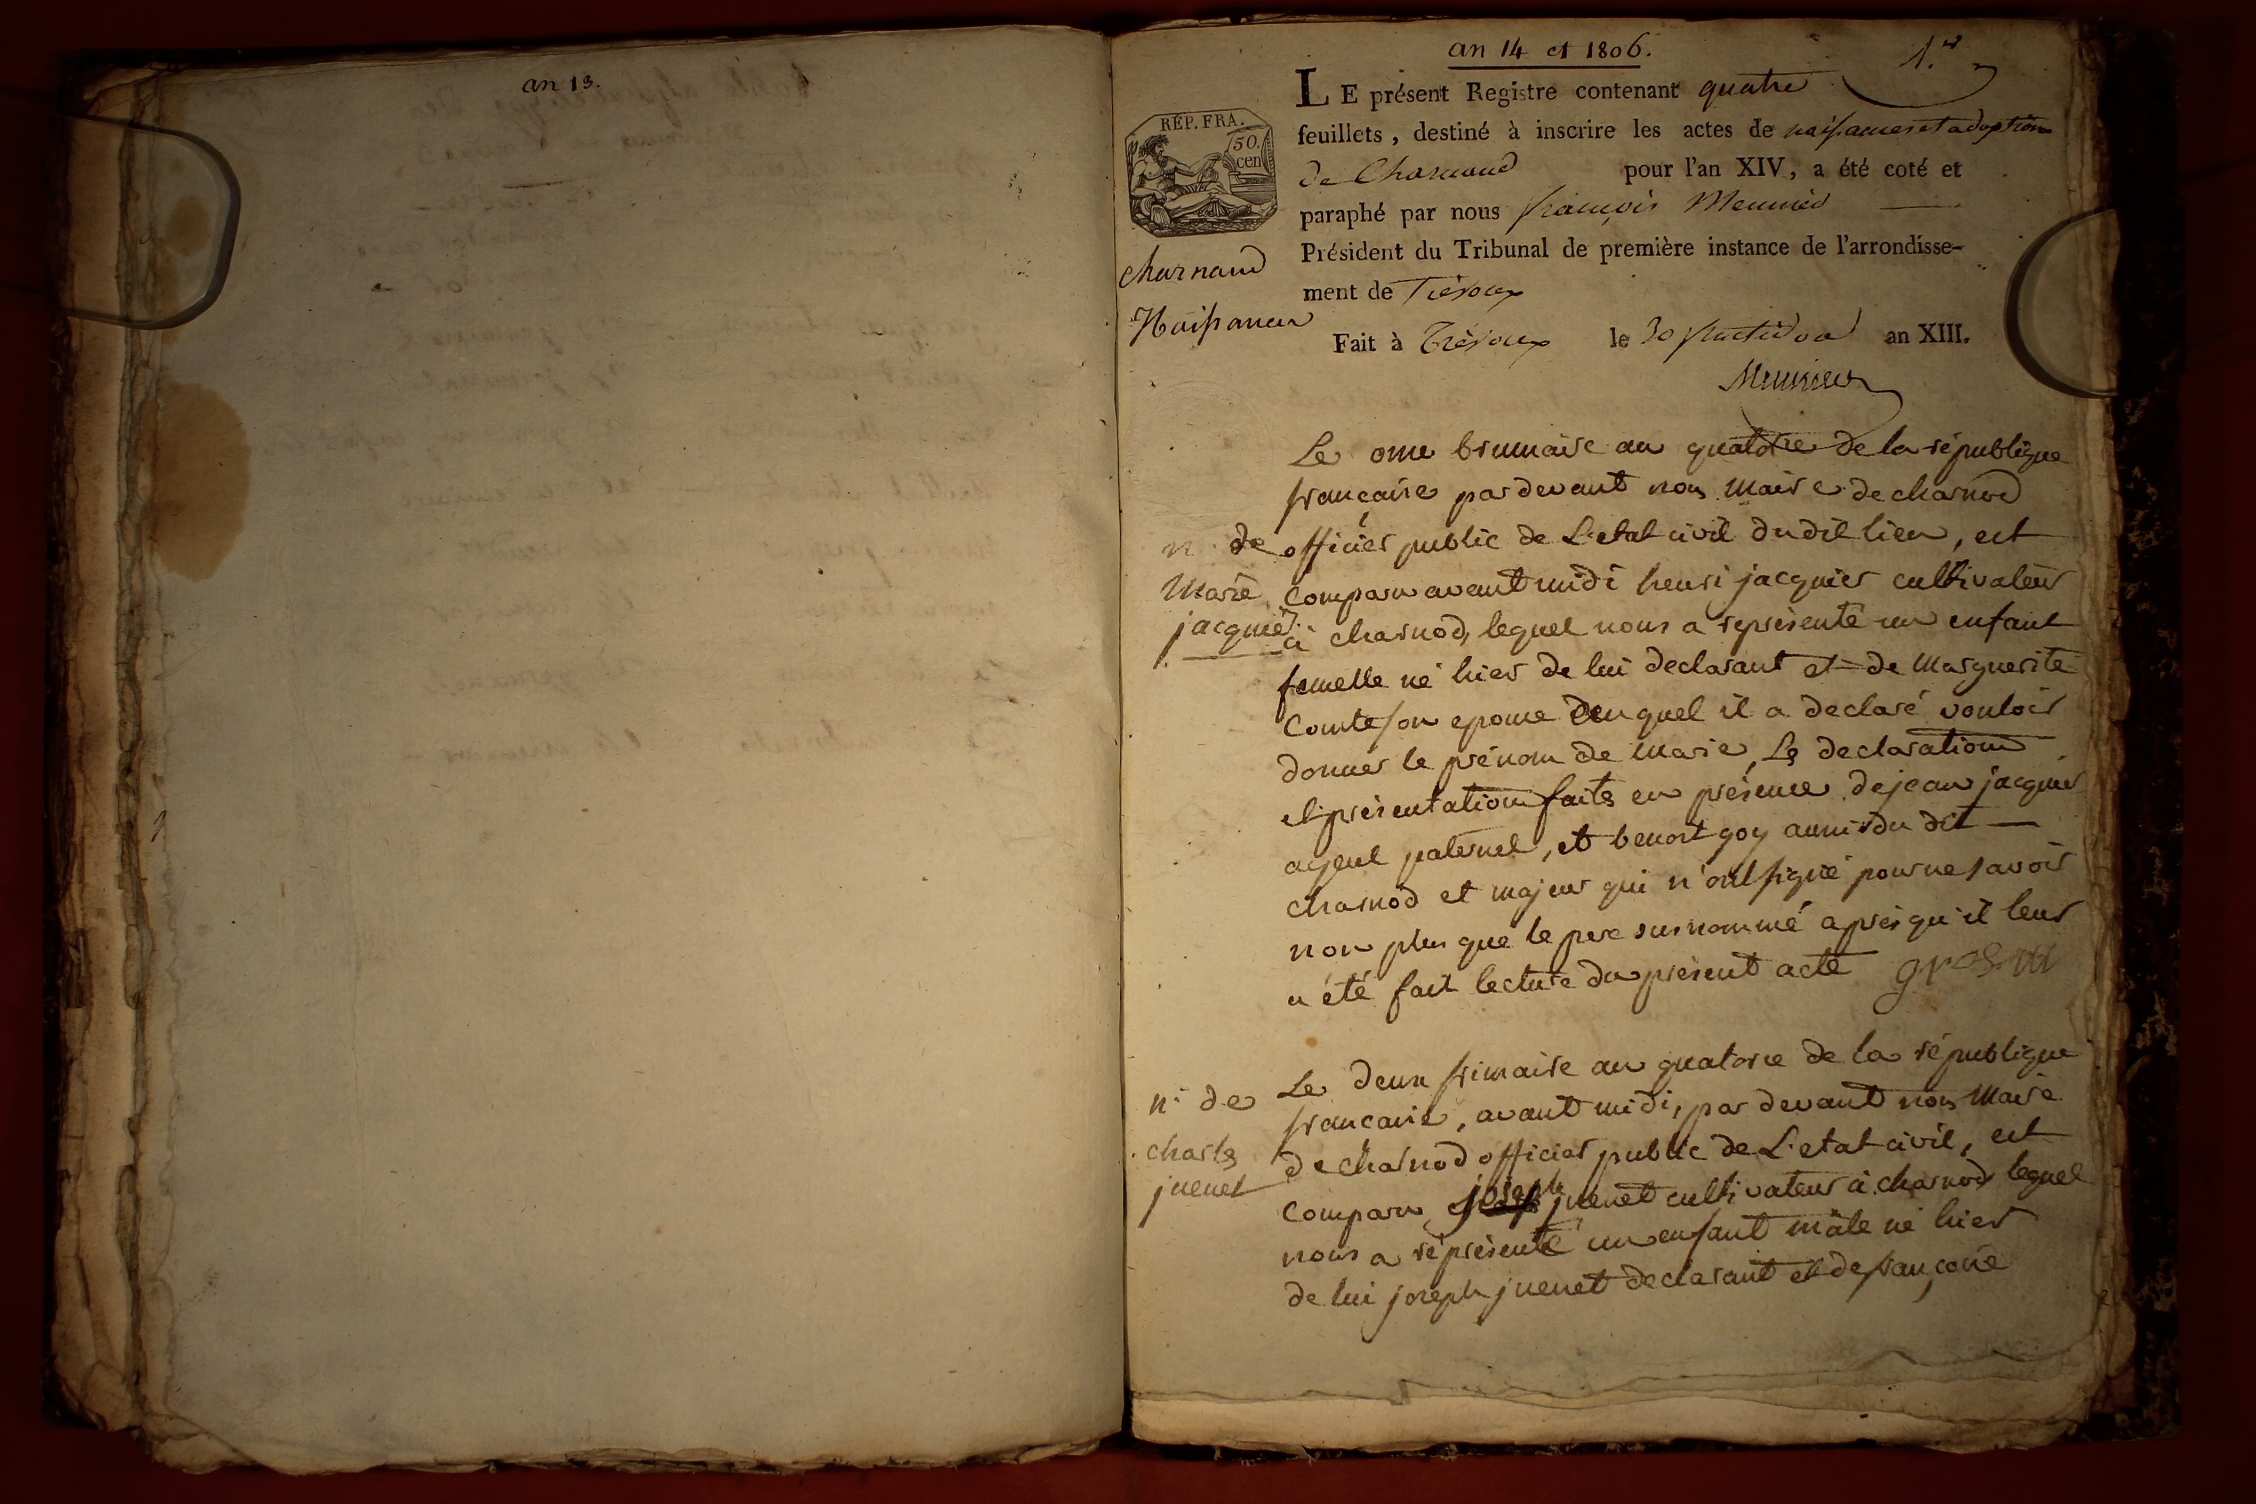 an 13.
an 14 et 1806.
1.er
LE présent Registre contenant quatre
feuillets, destiné à inscrire les actes de naissances et adoptions
de Charnaud pour l'an XIV, a été coté et
paraphé par nous françois Meunier
Président du Tribunal de première instance de l'arrondisse-
ment de Trévoux
Fait à Trévoux le 30 fructidor an XIII.
Meunier
RÉP. FRA.
50.
cen
charnaud
Naissances
Le onze brumaire an quatorze de la république
francaise par devant nous maire de charnod
officier public de L'etat civil du dit lieu, est
comparu avant midi henri jacquier cultivateur
à charnod, lequel nous a représenté un enfant
femelle né hier de lui declarant et de Marguerite
Comte son epouse auquel il a declaré vouloir
donner le prénom de Marie, Les declaration
et présentation faites en présence de jean jacquier
ayeul paternel, et benoit goy amis du dit
charnod et majeur qui n'ont signé pour ne savoir
non plus que le pere surnommé après qu'il leur
a été fait lecture du présent acte
n. de
Marie
jacquier
Le deux frimaire an quatorze de la république
francaise, avant midi, par devant nous Maire
de charnod officier public de L'etat civil, est
comparu joseph juenet cultivateur à charnod lequel
nous a réprésenté un enfant mâle né hier
de lui joseph juenet declarant et de françoise
n. de
charles
juenet